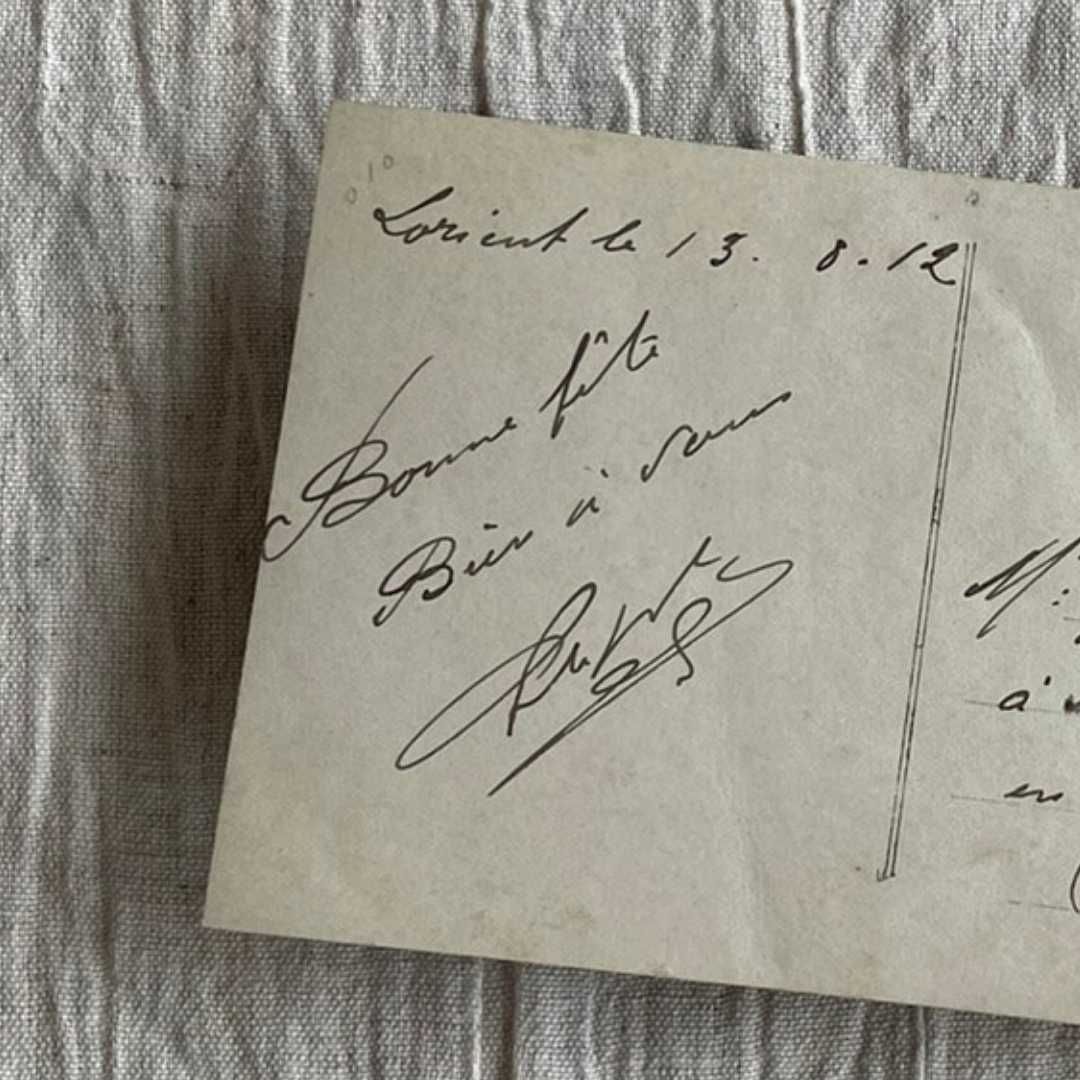 Lorient le 13. 8.12
Bonne fête
Bien à vous
M:
à
en